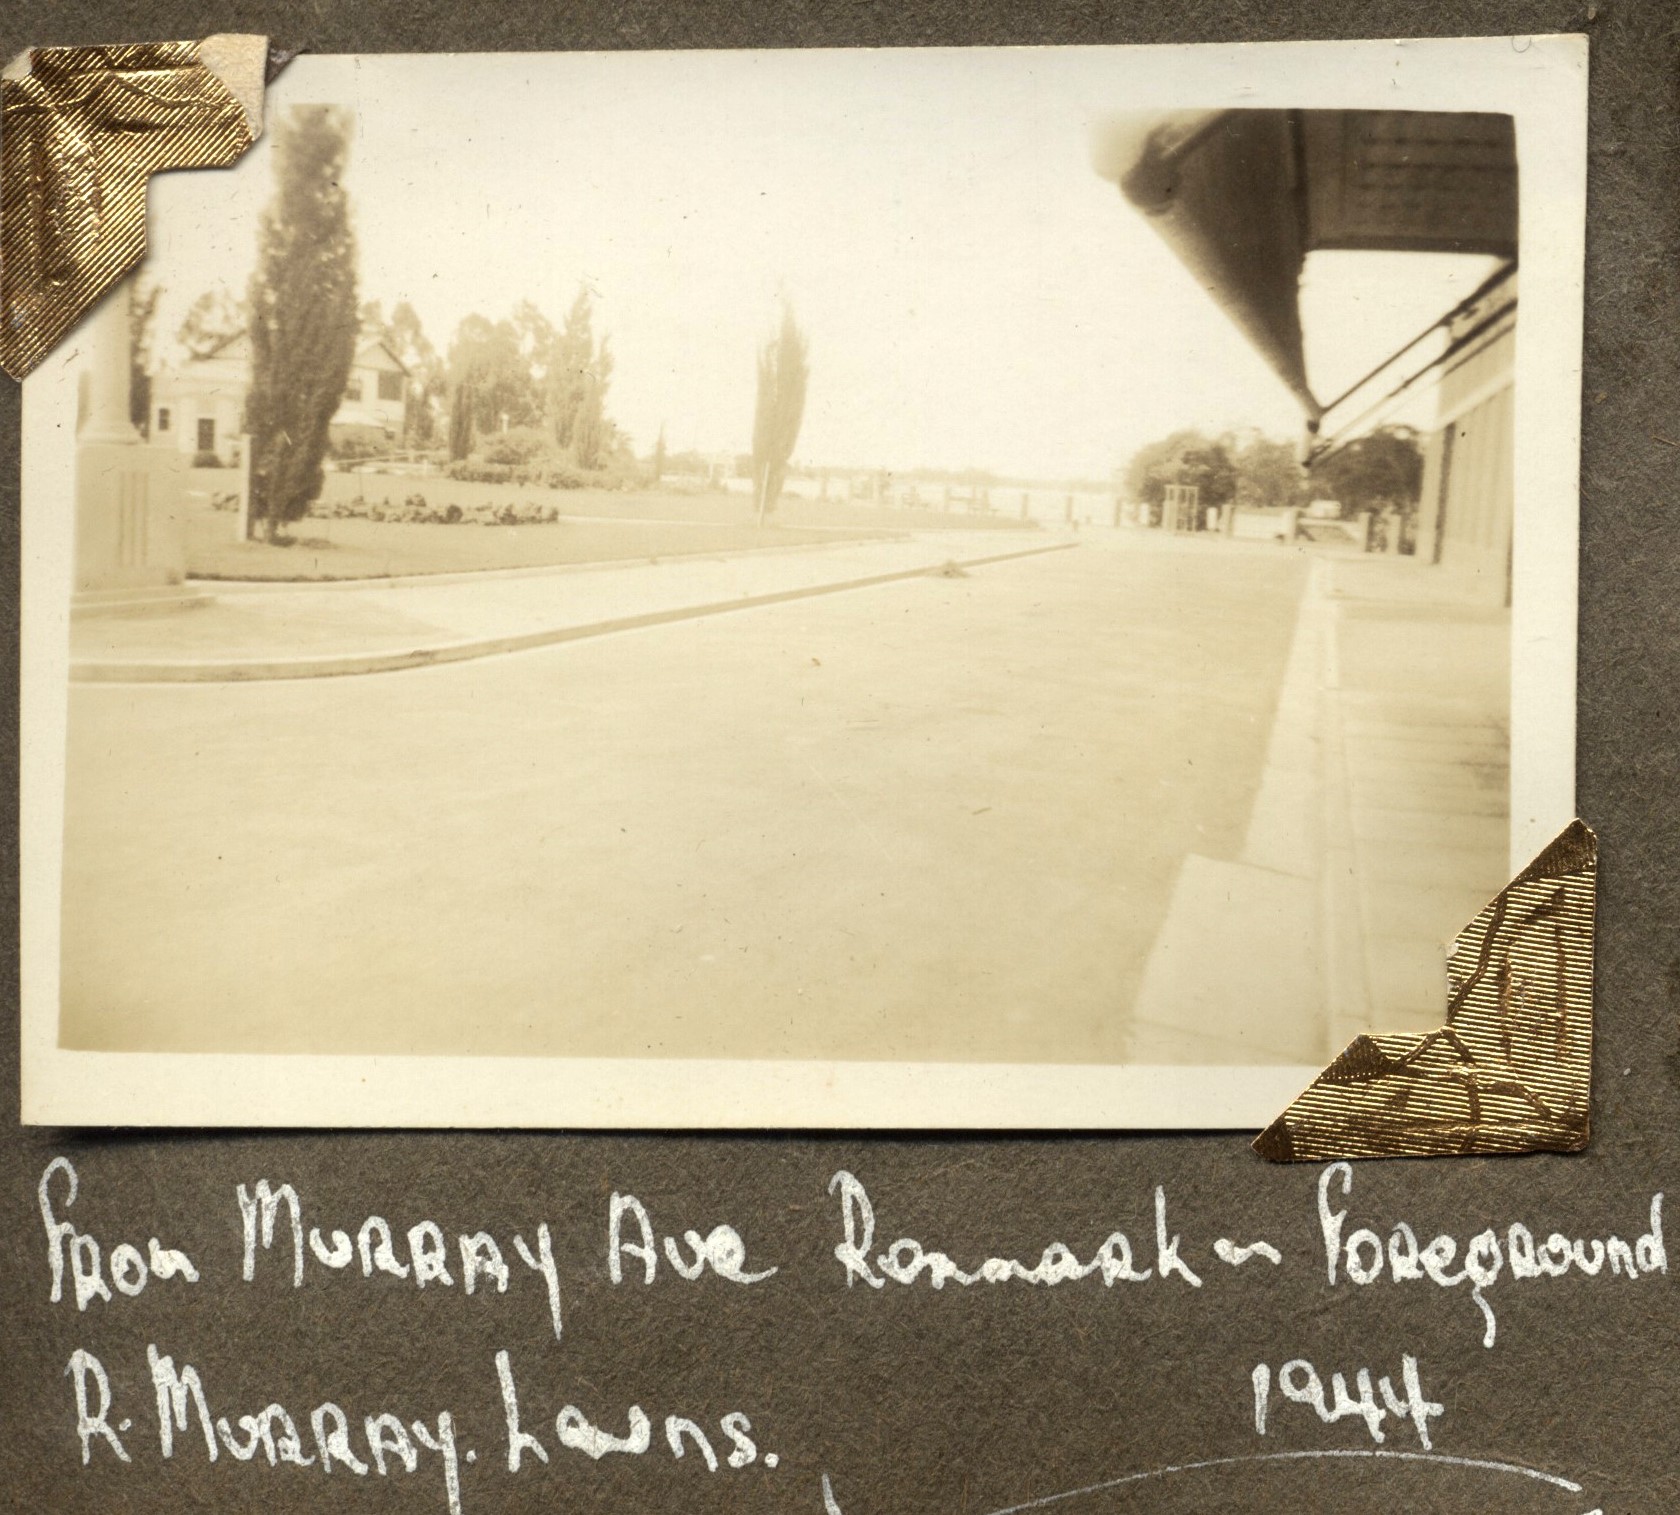 From Murray Ave Renmark in Foreground
R. Murray. Lawns. 1944